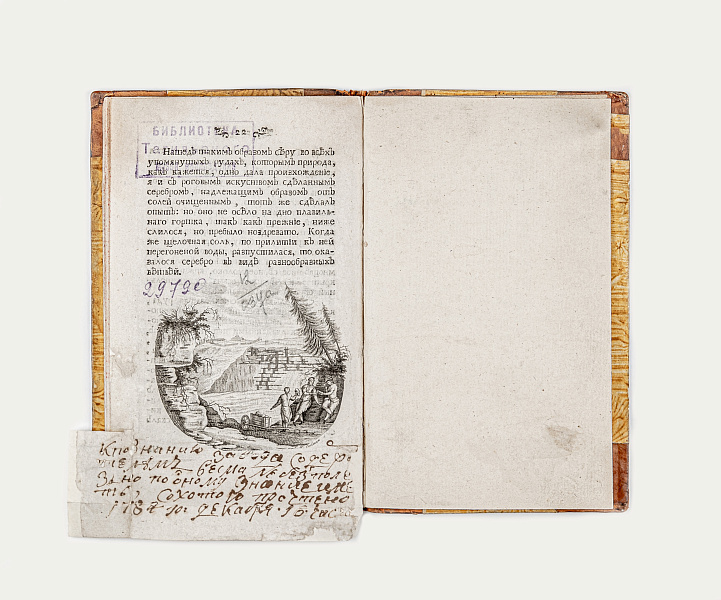 БИБЛИОТЕКА
22
Нашедъ такимъ образомъ сѣру во всѣхъ
упомянутыхъ рудахъ, которымъ природа,
какъ кажется, одно дала происхожденіе,
я и съ роговымъ искуствомъ сдѣланнымъ
серебромъ, надлежащимъ образомъ отъ
солей очищеннымъ, тотъ же сдѣлалъ
опытъ: но оно не осѣло на дно плавиль-
наго горшка, такъ какъ прежніе, ниже
слилося, но пребыло ноздревато. Когда
же щелочная соль, по прилитіи къ ней
перегоненой воды, распустилася, то ока-
залося серебро въ видѣ разнообразныхъ
вѣтвѣй.
29790
12
Кпознанию
весма
знание име
ть, Сохотою прочтено
декабря